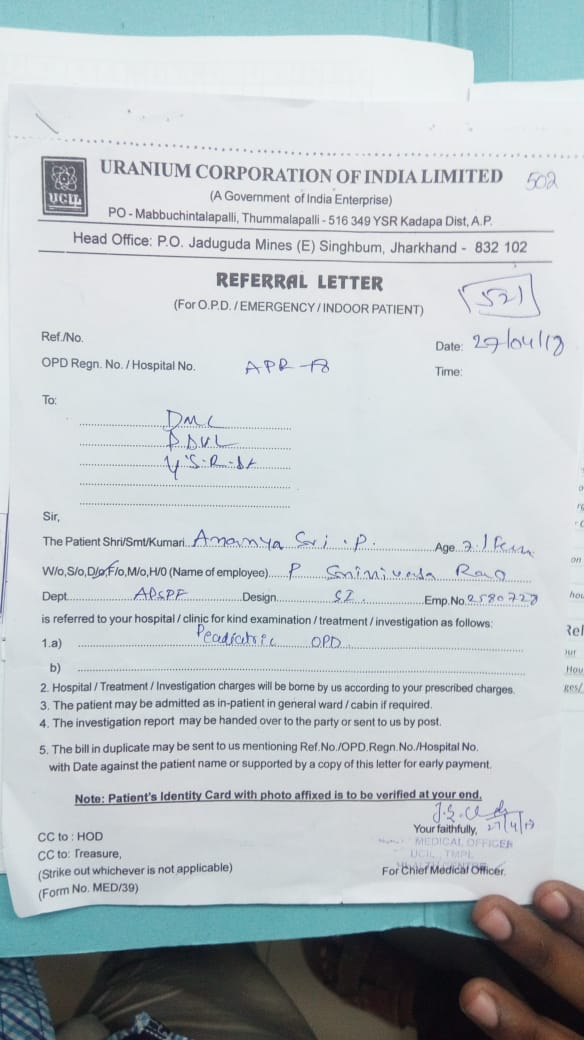 URANIUM CORPORATION OF INDIA LIMITED 502
UCIL
(A Government of India Enterprise)
PO - Mabbuchintalapalli, Thummalapalli - 516 349 YSR Kadapa Dist, A.P.
Head Office: P.O. Jaduguda Mines (E) Singhbum, Jharkhand - 832 102
REFERRAL LETTER
(For O.P.D. / EMERGENCY / INDOOR PATIENT)
521
Ref./No.
Date: 27/04/18
OPD Regn. No. / Hospital No. APR-18
Time:
To:
DMC
Sir,
The Patient Shri/Smt/Kumari Ananya Sri . P. Age 7 /
W/o,S/o,D/o,F/o,M/o,H/0 (Name of employee) P Srinivasa Rao
Dept. APSPF Design. SI Emp.No. 2580728
is referred to your hospital / clinic for kind examination / treatment / investigation as follows:
1.a) Peadiatric OPD
b)
2. Hospital / Treatment / Investigation charges will be borne by us according to your prescribed charges.
3. The patient may be admitted as in-patient in general ward / cabin if required.
4. The investigation report may be handed over to the party or sent to us by post.
5. The bill in duplicate may be sent to us mentioning Ref.No./OPD.Regn.No./Hospital No.
with Date against the patient name or supported by a copy of this letter for early payment.
Note: Patient's Identity Card with photo affixed is to be verified at your end.
CC to : HOD
Your faithfully,
MEDICAL OFFICER
CC to: Treasure,
UCIL, TMPL
(Strike out whichever is not applicable)
For Chief Medical Officer.
(Form No. MED/39)